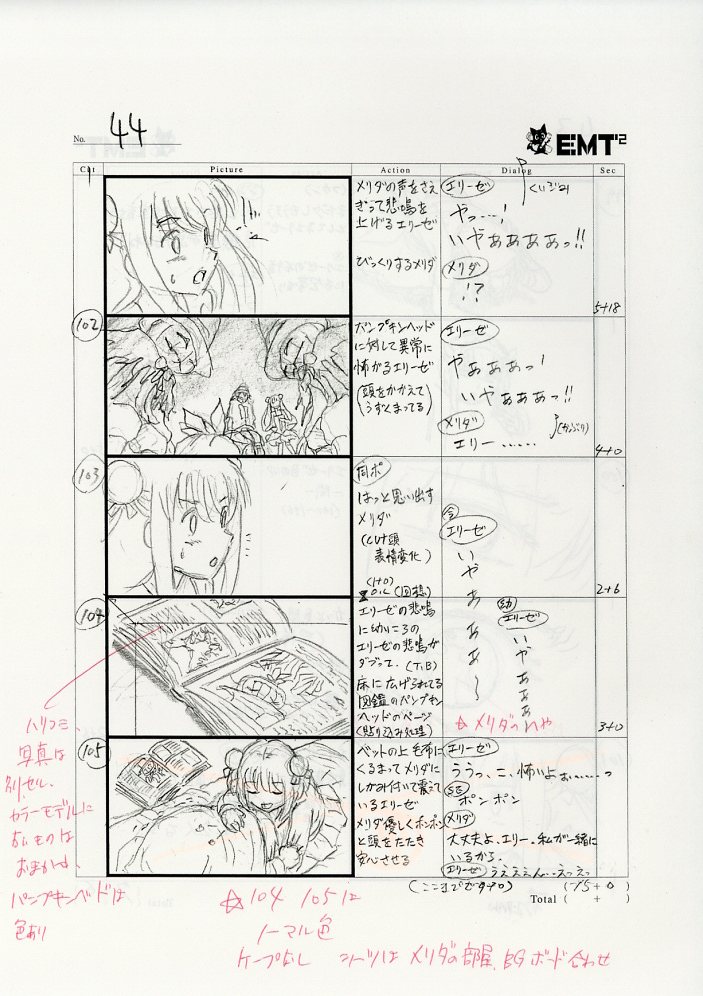 No. 44
EMT²
Cut Picture Action Dialog Sec
メリダの声をさえ
ぎって悲鳴を
上げるエリーゼ
びっくりするメリダ
エリーゼ
やっ…!
いやぁぁぁぁっ!!
メリダ
!?
5+18
102
パンプキンヘッド
に対して異常に
怖がるエリーゼ
(頭をかかえて
うずくまってる)
エリーゼ
やぁぁぁっ!
いやぁぁぁっ!!
メリダ
エリー……
4+0
103
同ポ
はっと思い出す
メリダ
(cut頭
表情変化)
(1+0)
O.L(回想)
エリーゼ
いやぁぁぁ〜
2+6
104
エリーゼの悲鳴
に幼いころの
エリーゼの悲鳴が
ダブって。(T.B)
床に広げられてる
図鑑のパンプキン
ヘッドのページ
(貼り込み処理)
幼
エリーゼ
いやぁぁぁ
☆メリダのへや
3+0
ハリコミ、
写真は
別セル、
カラーモデルに
ないものは
おまかせ、
パンプキンヘッドは
色あり
105
ベットの上毛布に
くるまってメリダに
しがみ付いて震えて
いるエリーゼ
メリダ優しくポンポン
と頭をたたき
安心させる
エリーゼ
ううっ、こ、怖いよぉぉ……っ
SE
ポンポン
メリダ
大丈夫よ、エリー。私が一緒に
いるから。
エリーゼ うぇぇぇん…えっえっ
(15+0)
Total ( + )
☆104 105は
ノーマル色
ケープなし シーツは メリダの部屋、BGボード合わせ